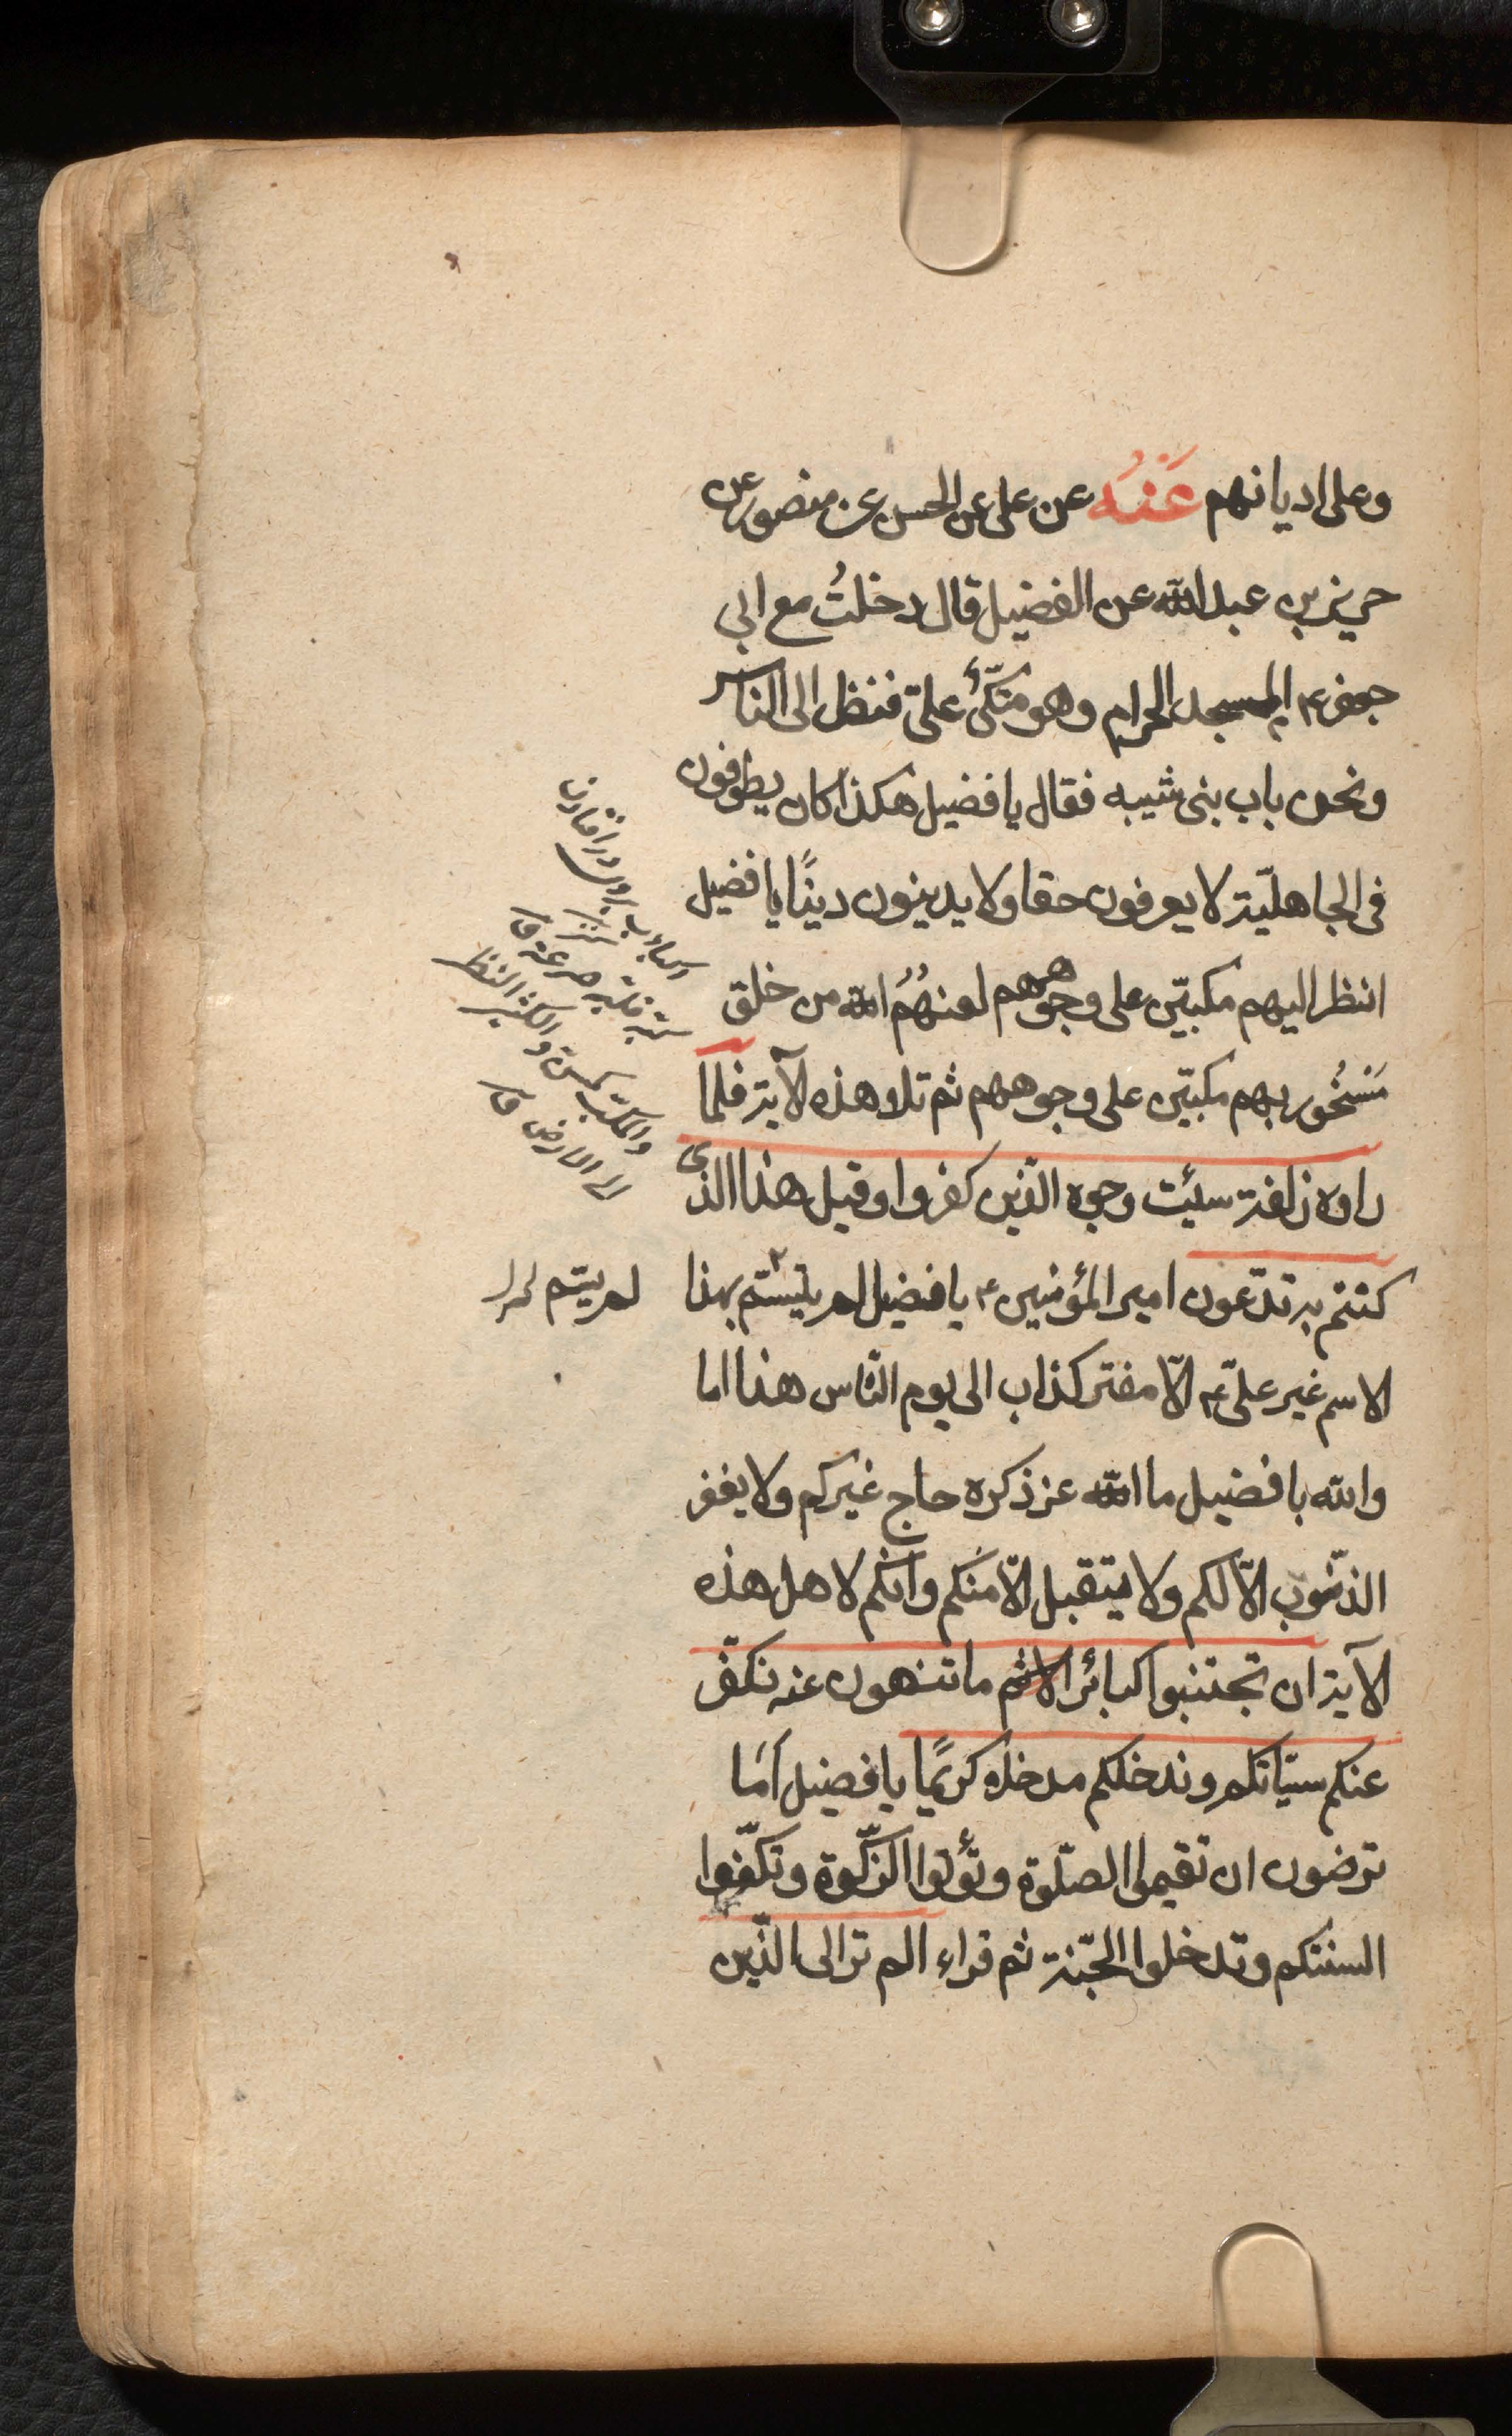 وعلى اديانهم عَنْهُ عن على عن الحسن عن منصور عن
حريز بن عبد الله عن الفضيل قال دخلتُ مع ابى
جعفر ع المسجد الحرام وهو متكّئ علىّ فنظر الى الناس
ونحن باب بنى شيبه فقال يا فضيل هكذا كان يطوفون
فى الجاهليّة لا يعرفون حقا ولا يدينون دينًا يا فضيل
انظر اليهم مكبيّن على وجوههم لعنهُمُ الله من خلق
مَسْخُور بهم مكبيّن على وجوههم ثم تلا هذه الآية فلمّا
راوه زلفة سيئت وجوه الذّين كفروا وقيل هذا الذى
كنتم به تدّعون امير المؤمنين ع يا فضيل لم يتسّم بهذا
لم يتسم
الاسم غير علىّ ع الّا مفتر كذاب الى يوم النّاس هذا اما
والله يا فضيل ما الله عز ذكره حاج غيركم ولا يغفر
الذنوب الّا لكم ولا يتقبل الّا منكم وانكم لاهل هذه
الآية ان تجتنبوا كبائر الاثم ما تنهون عنه نكفّر
عنكم سيّاتكم وندخلكم مدخلا كريمًا يا فضيل امَا
ترضون ان تقيموا الصّلوة وتؤتوا الزّكوة وتكفّوا
السنتكم وتدخلوا الجّنة ثم قراء الم تر الى الذّين